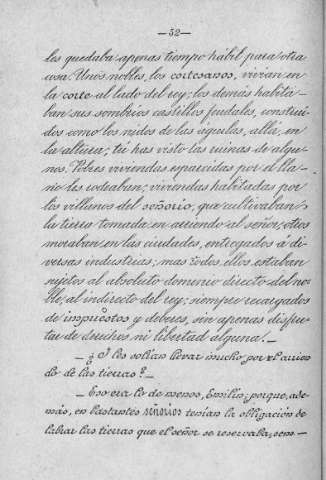 —52—
les quedaba apenas tiempo hábil para otra
cosa. Unos nobles, los cortesanos, vivian en
la corte al lado del rey; los demás habita-
ban sus sombrios castillos feudales, construi-
dos como los nidos de las águilas, allá, en
la altura; tú has visto las ruinas de algu-
nos. Pobres viviendas esparcidas por el lla-
no les rodeaban; viviendas habitadas por
los villanos del señorio, que cultivaban
la tierra tomada en arriendo al señor; otros
moraban en las ciudades, entregados á di-
versas industrias; mas todos ellos estaban
sujetos al absoluto dominio directo del no-
ble, al indirecto del rey; siempre recargados
de impuestos y deberes, sin apenas disfru-
tar de derechos ni libertad alguna.—
—¿Y les solian llevar mucho por el arrien
do de las tierras?—
—Eso era lo de menos, Emilin; porque, ade-
más, en bastantes señorios tenian la obligación de
labrar las tierras que el señor se reservaba, sem—